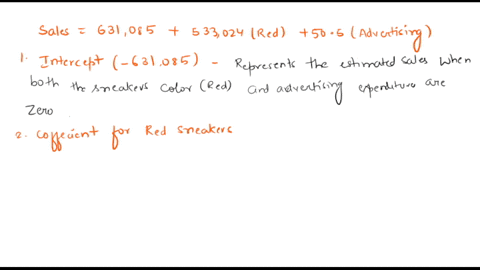 Sales = 631,085 + 533,024 (Red) + 50.5 (Advertising)
1. Intercept (-631,085) - Represents the estimated sales when
both the sneakers color (Red) and advertising expenditure are
zero
2. Cofficient for Red sneakers